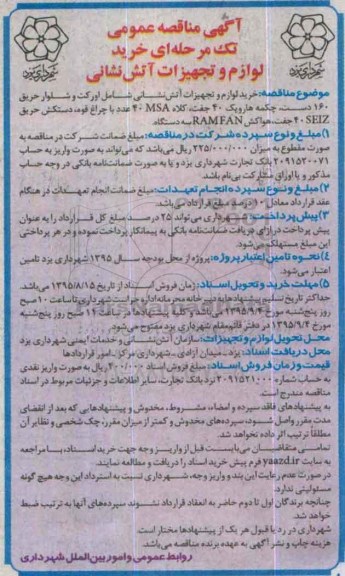 آگهی مناقصه عمومی
تک مرحله‌ای خرید
لوازم و تجهیزات آتش‌نشانی
شهرداری یزد
شهرداری یزد
موضوع مناقصه: خرید لوازم و تجهیزات آتش‌نشانی شامل اورکت و شلوار حریق
۱۶۰ دست، چکمه هارویک ۴۰ جفت، کلاه MSA ۴۰ عدد با چراغ قوه، دستکش حریق
SEIZ ۴۰ جفت، هواکش RAMFAN سه دستگاه.
۱) مبلغ و نوع سپرده شرکت در مناقصه: مبلغ ضمانت شرکت در مناقصه به
صورت مقطوع به میزان ۲۲۵/۰۰۰/۰۰۰ ریال می‌باشد که می‌تواند به صورت واریز به حساب
۲۰۹۱۵۲۰۰۷۱ بانک تجارت شهرداری یزد و یا به صورت ضمانت‌نامه بانکی در وجه حساب
مذکور و یا اوراق مشارکت بی‌نام باشد.
۲) مبلغ و نوع سپرده انجام تعهدات: مبلغ ضمانت انجام تعهدات در هنگام
عقد قرارداد معادل ۱۰ درصد مبلغ قرارداد می‌باشد.
۳) پیش پرداخت: شهرداری می‌تواند ۲۵ درصد مبلغ کل قرارداد را به عنوان
پیش پرداخت در ازای دریافت ضمانت‌نامه بانکی به پیمانکار پرداخت نموده و در هر پرداختی
این مبلغ مستهلک می‌شود.
۴) نحوه تامین اعتبار پروژه: پروژه از محل بودجه سال ۱۳۹۵ شهرداری یزد تامین
اعتبار می‌شود.
۵) مهلت خرید و تحویل اسناد: زمان فروش اسناد از تاریخ ۱۳۹۵/۸/۱۵ می‌باشد.
حداکثر تاریخ تسلیم پیشنهادها به دبیرخانه محرمانه اداره حراست شهرداری تا ساعت ۱۰ صبح
روز پنج‌شنبه مورخ ۱۳۹۵/۹/۴ می‌باشد و کلیه پیشنهادها در ساعت ۱۱ صبح روز پنج‌شنبه
مورخ ۱۳۹۵/۹/۴ در دفتر قائم‌مقام شهرداری یزد مفتوح می‌شود.
محل تحویل لوازم و تجهیزات: سازمان آتش‌نشانی و خدمات ایمنی شهرداری یزد
محل دریافت اسناد: یزد - میدان آزادی - شهرداری مرکز - امور قراردادها
قیمت و زمان فروش اسناد: مبلغ فروش اسناد ۲۰۰/۰۰۰ ریال به صورت واریز نقدی
به حساب شماره ۳۰۹۱۵۲۱۰۰۰ نزد بانک تجارت، سایر اطلاعات و جزئیات مربوط در اسناد
مناقصه مندرج است.
به پیشنهادهای فاقد سپرده و امضاء، مشروط، مخدوش و پیشنهادهایی که بعد از انقضای
مدت مقرر واصل شود، سپرده‌های مخدوش و کمتر از میزان مقرر، چک شخصی و نظایر آن
مطلقاً ترتیب اثر داده نخواهد شد.
تمامی متقاضیان می‌بایست قبل از واریز وجه جهت خرید اسناد، با مراجعه
به سایت yaazd.ir فرم پیش خرید اسناد را دریافت و مطالعه نمایند.
در صورت عدم رعایت این بند و واریز وجه، شهرداری نسبت به استرداد این وجه هیچ گونه
مسئولیتی ندارد.
چنانچه برندگان اول تا دوم حاضر به انعقاد قرارداد نشوند، سپرده‌های آنها به ترتیب ضبط
خواهد شد.
شهرداری در رد یا قبول هر یک از پیشنهادها مختار است
هزینه چاپ و نشر آگهی به عهده برنده مناقصه می‌باشد.
روابط عمومی و امور بین‌الملل شهرداری